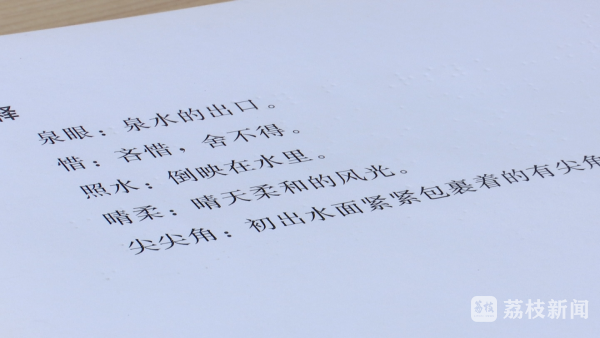 释
泉眼：泉水的出口。
惜：吝惜，舍不得。
照水：倒映在水里。
晴柔：晴天柔和的风光。
尖尖角：初出水面紧紧包裹着的有尖角
荔枝新闻